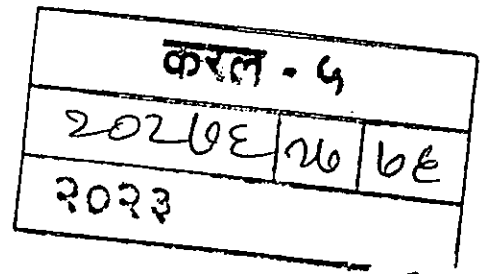 करल - ५
२०२७६ २७ ७६
२०२३